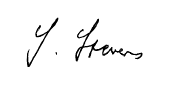 Y. Stevens